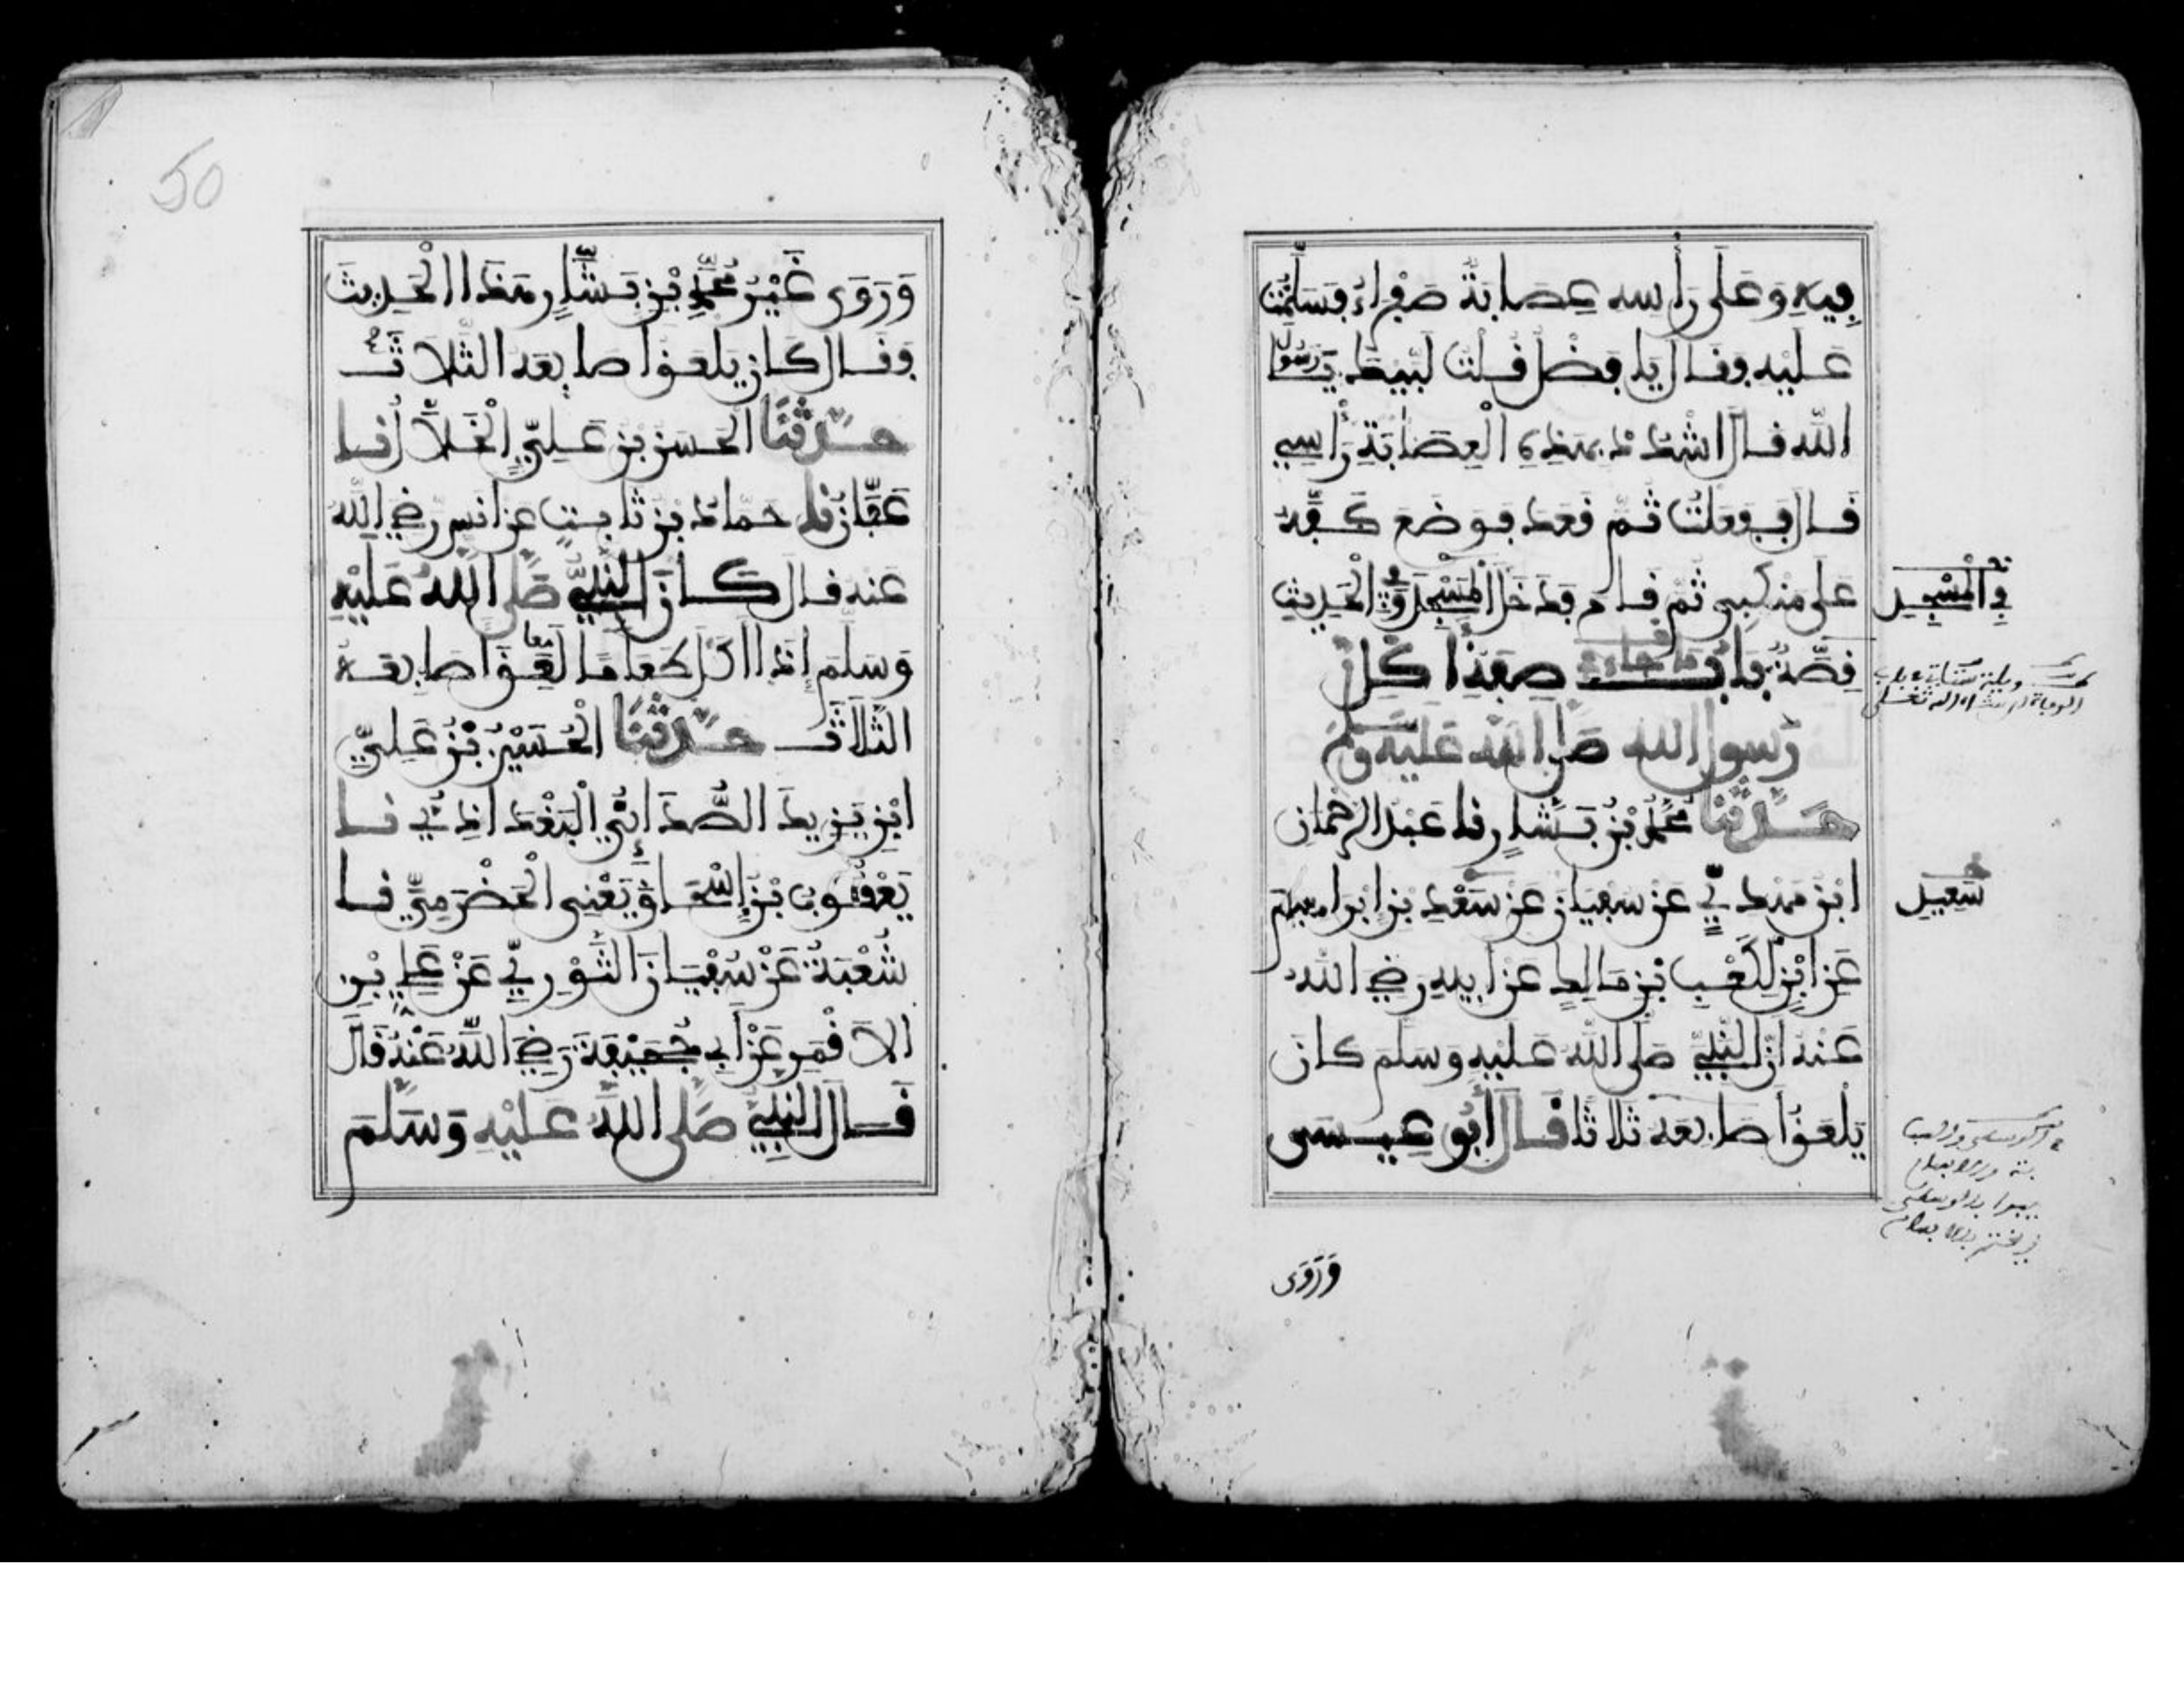 فِيهِ وَعَلَى رَأْسِهِ عِصَابَةٌ صَفْرَاءُ فَسَلَّمْتُ
عَلَيْهِ فَقَالَ يَا فَضْلُ قُلْتُ لَبَّيْكَ يَا رَسُولَ
اللَّهِ قَالَ اشْدُدْ بِهَذِهِ الْعِصَابَةِ رَأْسِي
قَالَ فَفَعَلْتُ ثُمَّ قَعَدَ فَوَضَعَ كَفَّهُ
عَلَى مَنْكِبِي ثُمَّ قَامَ فَدَخَلَ الْمَسْجِدَ وَفِي الْحَدِيثِ
فِي الْمَسْجِدِ
قِصَّةٌ بَابُ مَا جَاءَ فِي صِفَةِ أَكْلِ
رَسُولِ اللَّهِ صَلَّى اللَّهُ عَلَيْهِ وَسَلَّمَ
حَدَّثَنَا مُحَمَّدُ بْنُ بَشَّارٍ نَا عَبْدُ الرَّحْمَانِ
ابْنُ مَهْدِيٍّ عَنْ سُفْيَانَ عَنْ سَعْدِ بْنِ إِبْرَاهِيمَ
سَعِيدِ
عَنِ ابْنٍ لِكَعْبِ بْنِ مَالِكٍ عَنْ أَبِيهِ رَضِيَ اللَّهُ
عَنْهُ أَنَّ النَّبِيَّ صَلَّى اللَّهُ عَلَيْهِ وَسَلَّمَ كَانَ
يَلْعَقُ أَصَابِعَهُ ثَلَاثًا قَالَ أَبُو عِيسَى
وَرَوَى
50
وَرَوَى غَيْرُ مُحَمَّدِ بْنِ بَشَّارٍ هَذَا الْحَدِيثَ
وَقَالَ كَانَ يَلْعَقُ أَصَابِعَهُ الثَّلَاثَ
حَدَّثَنَا الْحَسَنُ بْنُ عَلِيٍّ الْخَلَّالُ نَا
عَفَّانُ نَا حَمَّادُ بْنُ ثَابِتٍ عَنْ أَنَسٍ رَضِيَ اللَّهُ
عَنْهُ قَالَ كَانَ النَّبِيُّ صَلَّى اللَّهُ عَلَيْهِ
وَسَلَّمَ إِذَا أَكَلَ طَعَامًا لَعِقَ أَصَابِعَهُ
الثَّلَاثَ حَدَّثَنَا الْحُسَيْنُ بْنُ عَلِيِّ
ابْنِ يَزِيدَ الصُّدَائِيُّ الْبَغْدَاذِيُّ نَا
يَعْقُوبُ بْنُ إِسْحَاقَ يَعْنِي الْحَضْرَمِيَّ نَا
شُعْبَةُ عَنْ سُفْيَانَ الثَّوْرِيِّ عَنْ عَلِيِّ بْنِ
الْأَقْمَرِ عَنْ أَبِي جُحَيْفَةَ رَضِيَ اللَّهُ عَنْهُ قَالَ
قَالَ النَّبِيُّ صَلَّى اللَّهُ عَلَيْهِ وَسَلَّمَ